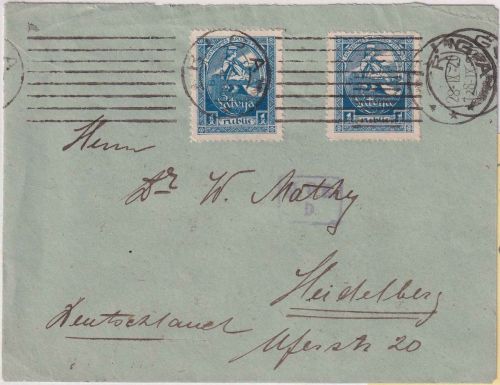 RIGA
Latvija
1 rublis 1
Latvija
1 rublis 1
Herrn
Dr W. Mathy
D.
Heidelberg
Deutschland
Uferstr 20